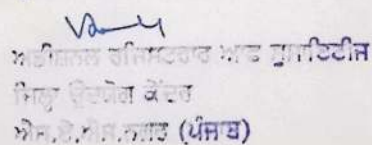 ਅਡੀਸ਼ਨਲ ਰਜਿਸਟਰਾਰ ਆਫ ਸੁਸਾਇਟੀਜ਼
ਜ਼ਿਲ੍ਹਾ ਉਦਯੋਗ ਕੇਂਦਰ
ਐਸ.ਏ.ਐਸ.ਨਗਰ (ਪੰਜਾਬ)